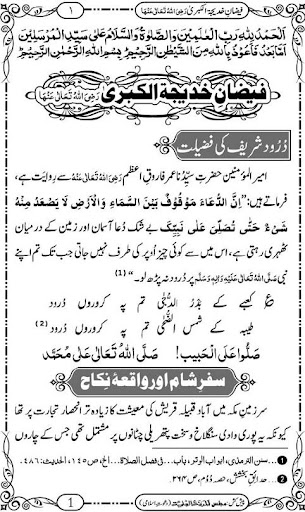 فیضانِ خدیجۃ الکبریٰ رَضِیَ اللہُ تَعَالٰی عَنْہَا
١
اَلْحَمْدُ لِلّٰہِ رَبِّ الْعٰلَمِیْنَ وَالصَّلٰوۃُ وَالسَّلَامُ عَلٰی سَیِّدِ الْمُرْسَلِیْنَ
اَمَّا بَعْدُ فَاَعُوْذُ بِاللّٰہِ مِنَ الشَّیْطٰنِ الرَّجِیْمِ بِسْمِ اللّٰہِ الرَّحْمٰنِ الرَّحِیْمِ
فیضانِ خدیجۃ الکبریٰ رَضِیَ اللہُ تَعَالٰی عَنْہَا
دُرُود شریف کی فضیلت
امیر المؤمنین حضرتِ سیِّدُنا عمر فاروقِ اعظم رَضِیَ اللہُ تَعَالٰی عَنْہُ سے روایت ہے،
فرماتے ہیں: اِنَّ الدُّعَاءَ مَوْقُوْفٌ بَیْنَ السَّمَاءِ وَالْاَرْضِ لَا یَصْعَدُ مِنْہُ
شَیْءٌ حَتّٰی تُصَلِّیَ عَلٰی نَبِیِّکَ بے شک دُعا آسمان اور زمین کے درمیان
ٹھہری رہتی ہے، اس میں سے کوئی چیز اُوپر کی طرف نہیں جاتی جب تک تم اپنے
نبی صَلَّی اللہُ تَعَالٰی عَلَیْہِ وَاٰلِہٖ وَسَلَّم پر دُرود نہ پڑھ لو۔“ (1)
؏ کعبے کے بَدْرُ الدُّجٰی تم پہ کروروں دُرود
طیبہ کے شمسُ الضُّحٰی تم پہ کروروں دُرود (2)
صَلُّوْا عَلَی الْحَبِیْب! صَلَّی اللہُ تَعَالٰی عَلٰی مُحَمَّد
سفرِ شام اور واقعۂ نِکاح
سر زمینِ مکہ میں آباد قبیلۂ قریش کی معیشت کا زیادہ تر انحصار تجارت پر تھا
کیونکہ یہ پوری وادی، سنگلاخ و سخت پتھریلی چٹانوں پر مشتمل تھی جس کے چاروں
1... سنن الترمذی، ابواب الوتر، باب ... فی فضل الصلاۃ... الخ، ص١٤٥، الحدیث: ٤٨٦.
2... حدائقِ بخشش، ص٢٦٤.
پیش کش: مجلس (دعوتِ اسلامی)
1